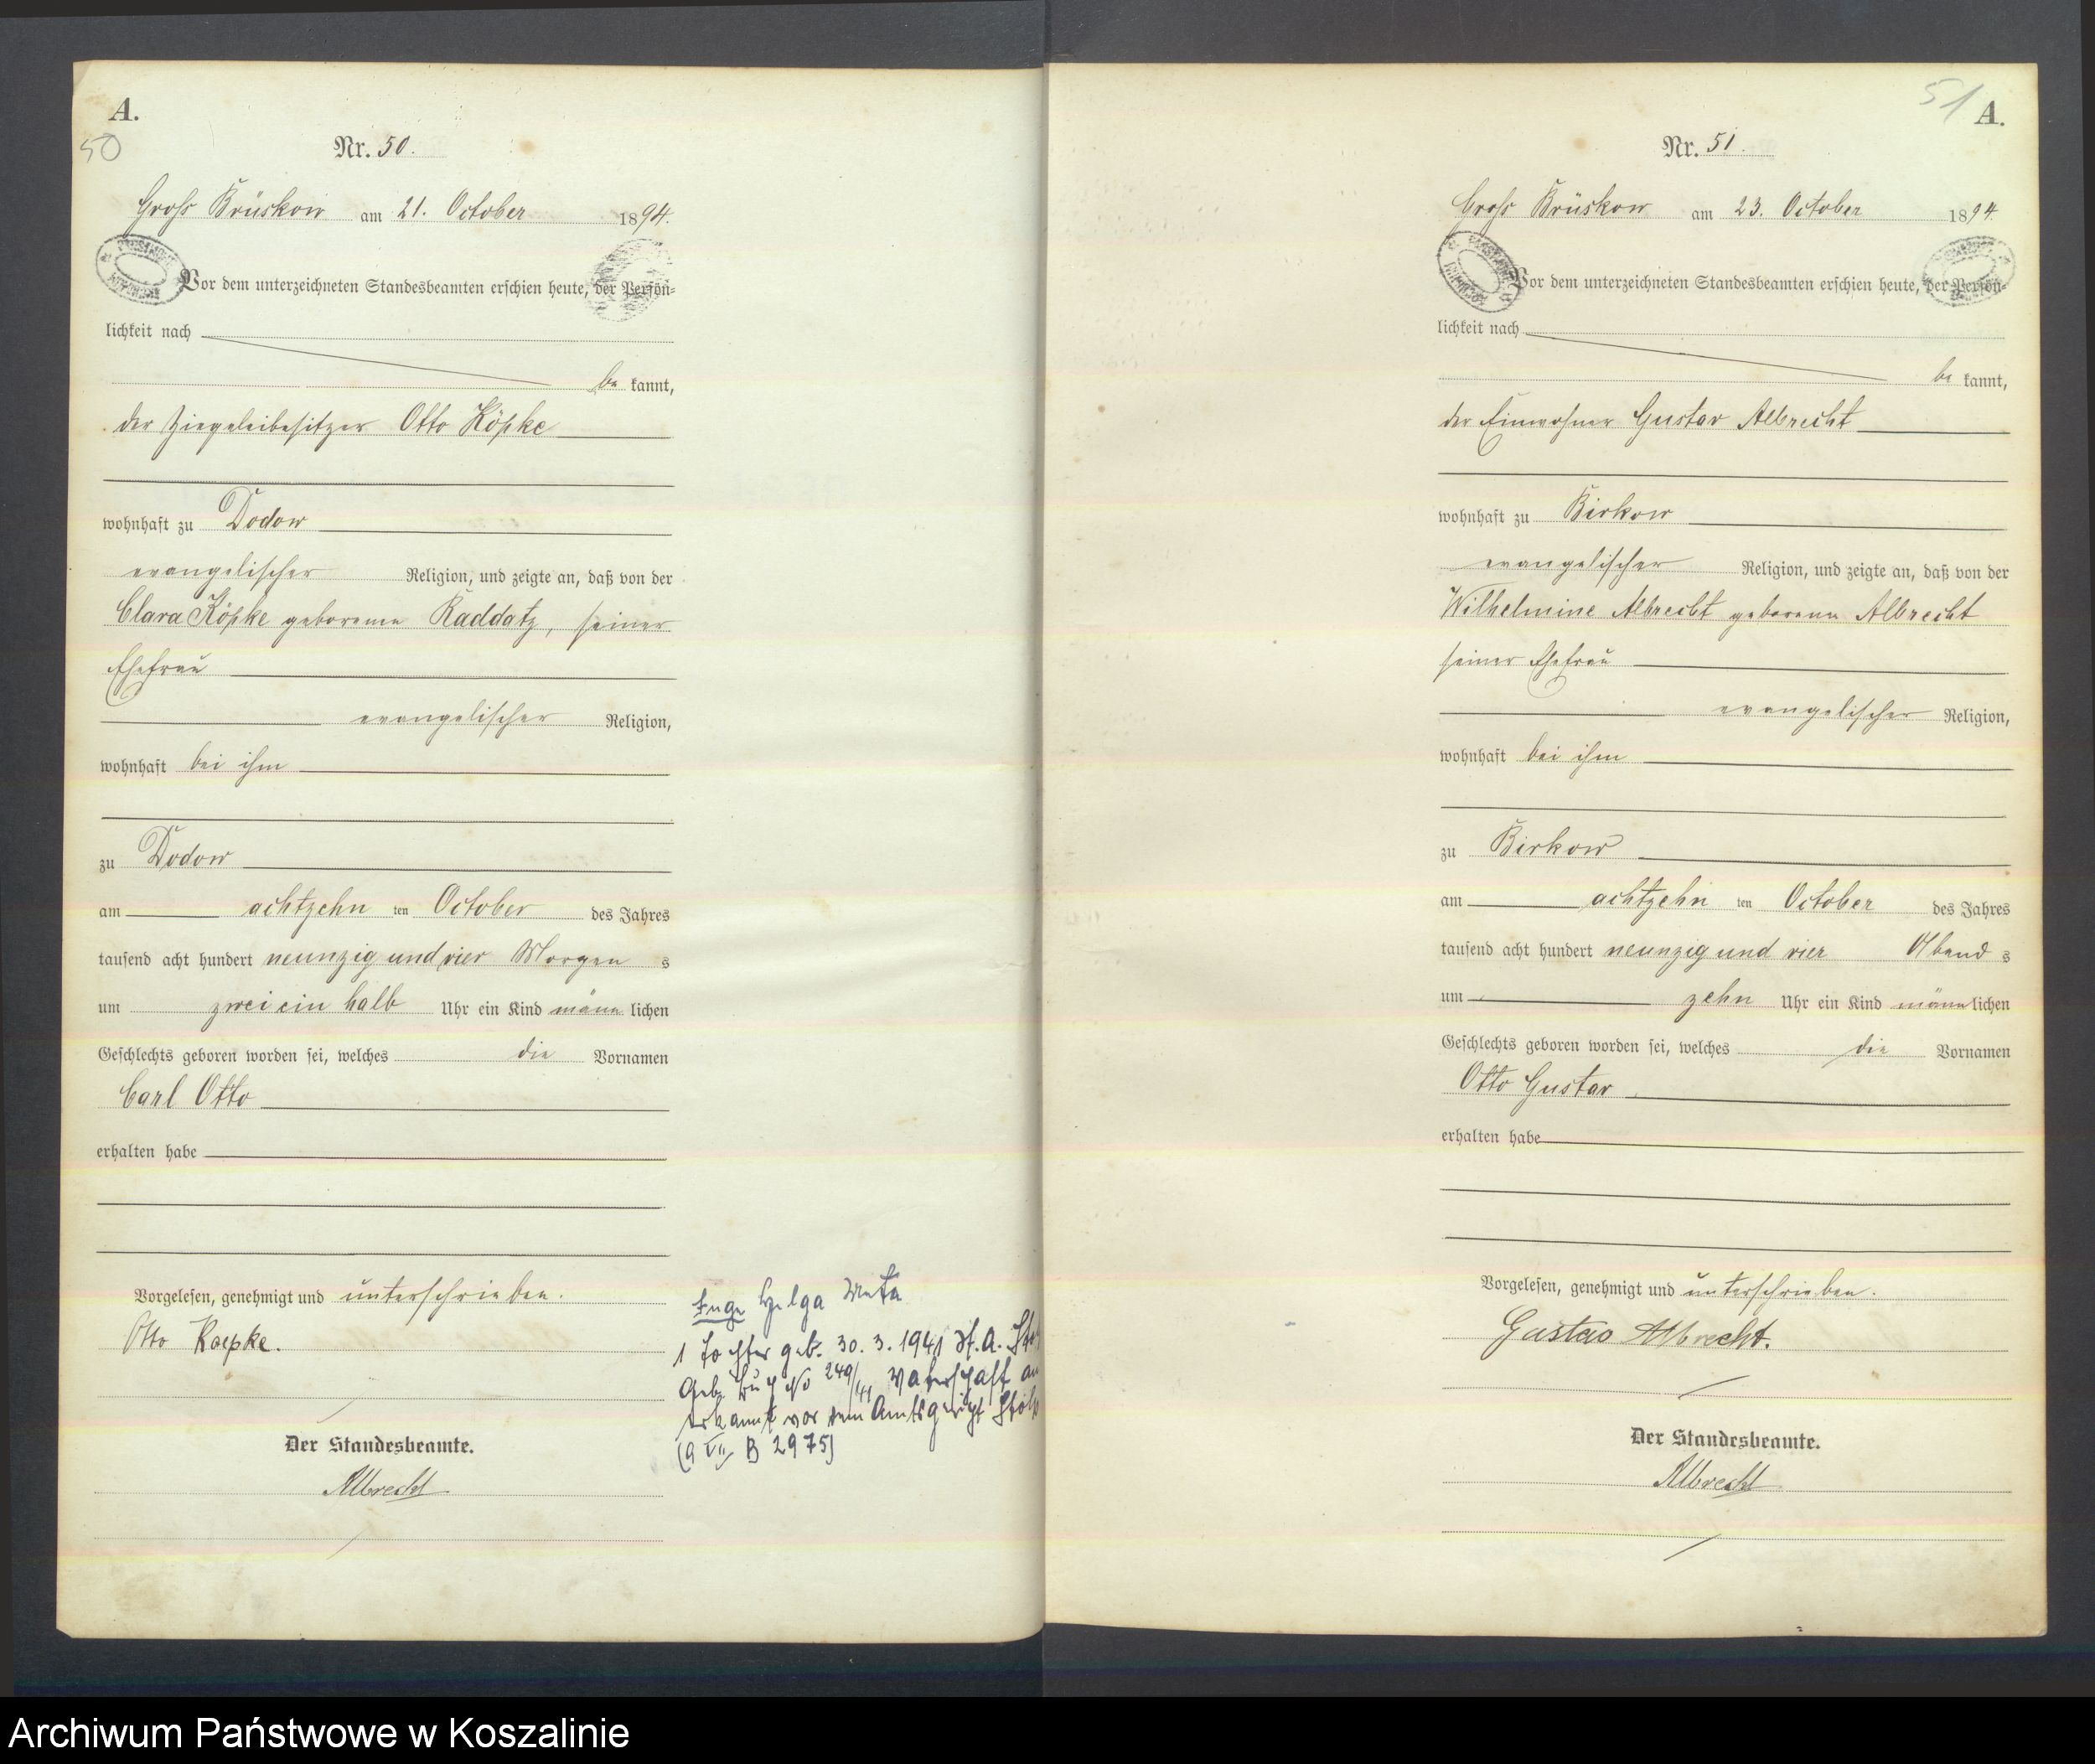 A.
50
Nr. 50.
Gross Brüskow am 21. October 1894.
Vor dem unterzeichneten Standesbeamten erschien heute, der Persön-
lichkeit nach
be kannt,
der Ziegeleibesitzer Otto Köpke
wohnhaft zu Dodow
evangelischer Religion, und zeigte an, daß von der
Clara Köpke geborenen Raddatz, seiner
Ehefrau
evangelischer Religion,
wohnhaft bei ihm
zu Dodow
am achtzehn ten October des Jahres
tausend acht hundert neunzig und vier Morgen s
um zwei ein halb Uhr ein Kind männ lichen
Geschlechts geboren worden sei, welches die Vornamen
Carl Otto
erhalten habe
Vorgelesen, genehmigt und unterschrieben.
Otto Koepke.
Der Standesbeamte.
Albrecht
Helga Meta
1 Tochter geb. 30. 3. 1941 St. A.
Geb. Buch No 249/41 Vaterschaft an
erkannt vor dem Amtsgericht Stolp
(9 VII B 2975)
51
A.
Nr. 51.
Gross Brüskow am 23. October 1894.
Vor dem unterzeichneten Standesbeamten erschien heute, der Persön-
lichkeit nach
be kannt,
der Einwohner Gustav Albrecht
wohnhaft zu Birkow
evangelischer Religion, und zeigte an, daß von der
Wilhelmine Albrecht geborene Albrecht
seiner Ehefrau
evangelischer Religion,
wohnhaft bei ihm
zu Birkow
am achtzehn ten October des Jahres
tausend acht hundert neunzig und vier Abend s
um zehn Uhr ein Kind männ lichen
Geschlechts geboren worden sei, welches die Vornamen
Otto Gustav
erhalten habe
Vorgelesen, genehmigt und unterschrieben.
Gustav Albrecht.
Der Standesbeamte.
Albrecht
Archiwum Państwowe w Koszalinie